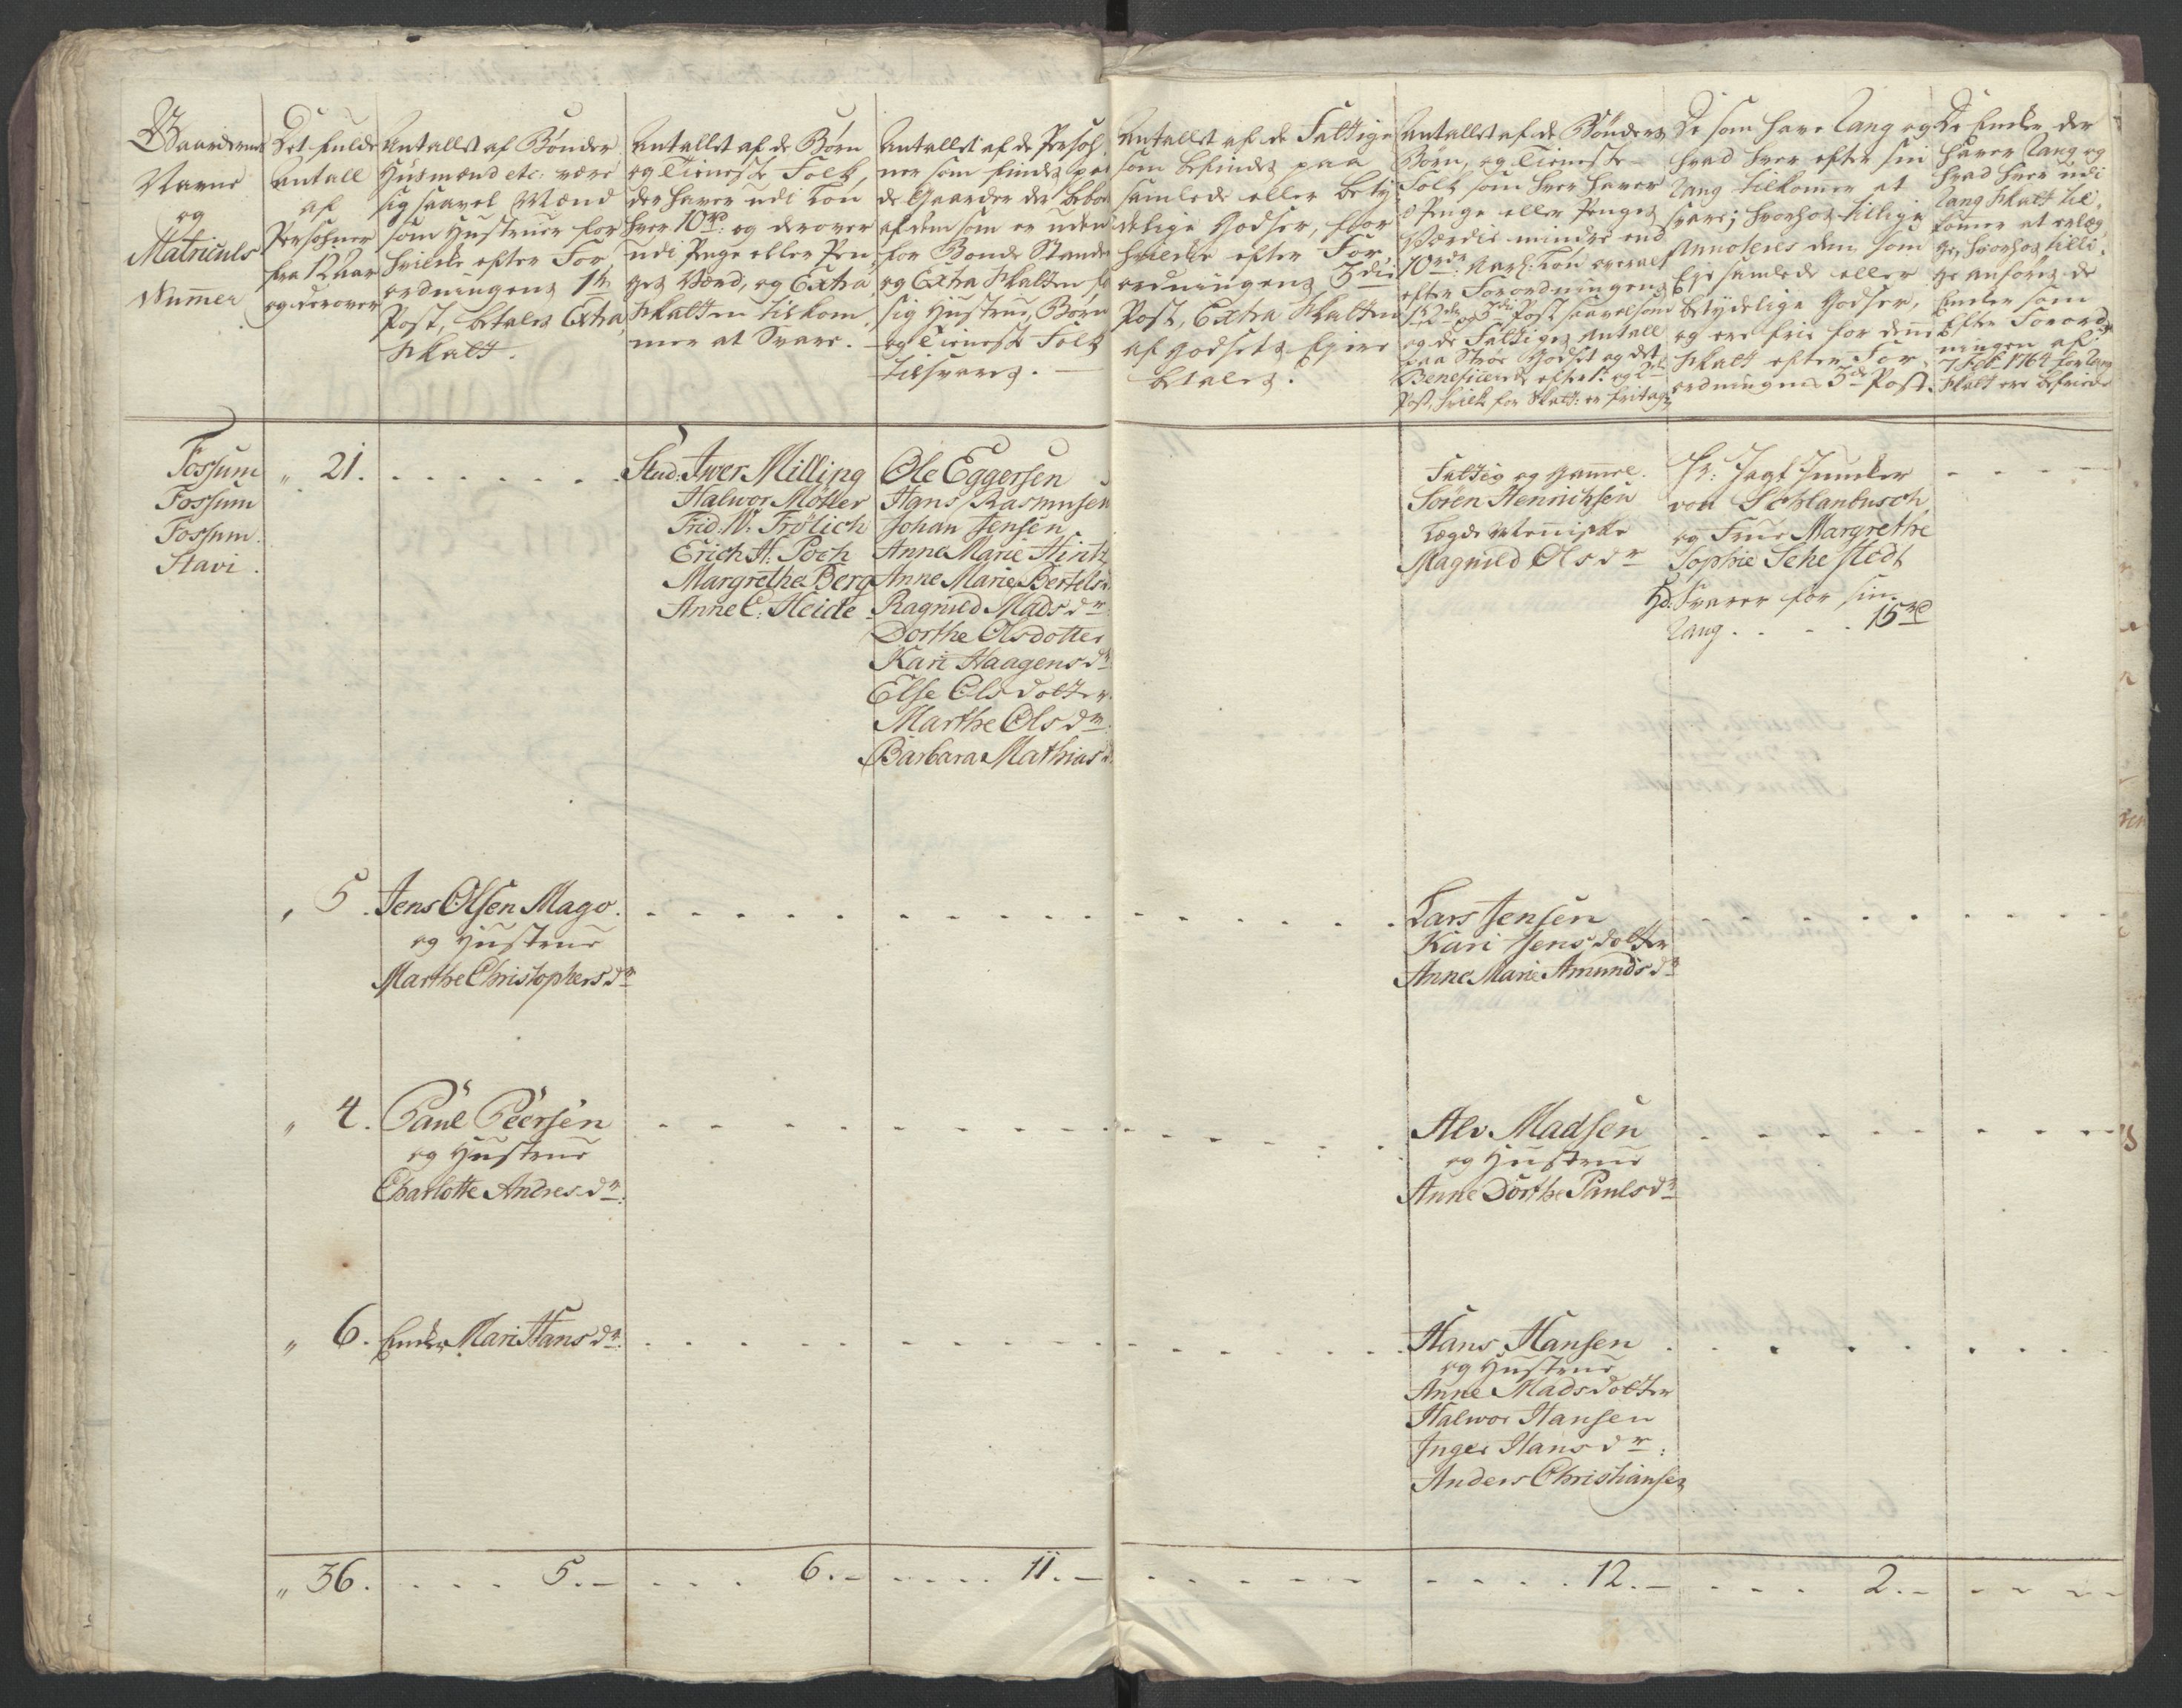 Gaardernes
Navne
og
Matriculs
Numer
Det fulde
Antall
af
Persohner
fra 12 Aar
og derover
Antallet af Bønder
Husmænd etc: være
sig saavel Mænd
som Hustruer for
hvilke efter For
ordningens 1te
Post, betales Extra
Skatt.
Antallet af de Børn
og Tieneste Folk,
der haver udi Løn
hver 10rd: og derover
udi Penge eller Pen
ges Værd, og Extra
Skatten tilkom
mer at Svare.
Antallet af de Persoh
ner som findes paa
de Gaarder der beboes
af dem som er uden
for Bonde Stande
og Extra Skatten for
sig Hustrue, Børn
og Tieneste Folk
tilsvares.
Antallet af de Fattige
som befindes paa
samlede eller bety
delige Godser, for
hvilke efter For
ordningens 3die
Post, Extra Skatten
af Godsets Ejere
betales.
Antallet af de Bønders
Børn, og Tieneste
Folk som hver haver
i Penge eller Penges
Værdie mindre end
10rdr: Aarl: Løn overalt
efter Forordningens
1te 2den og 5te Post saavelsom
og de Fattiges Antall
paa Strøe Godset og det
Beneficerede efter 1te og 2den
Post, hvilke for Skatt: er fritagen
De som have Rang og
hvad hver efter sin
Rang tilkommer at
svare; hvorhos tillige
Annoteres dem som
Eje samlede eller
betydelige Godser,
og ere frie for denne
Skatt efter For
ordningens 3die Post.
De Enker der
haver Rang og
hvad hver udi
Rang Skatt til
kommer at erlæg
ge, hvorhos tilli
ge anføres de
Enker som
efter Forord
ningen af
7 Feb: 1764 for Rang
Skatt ere befriede
Fossum
Fossum
Fossum.
Stavi.
" 21. . . . . . . .
Stud: Iver Milling
Halwor Möller
Frid: W: Frölich
Erich H: Poch
Margrethe Berg
Anne C: Heide
Ole Eggersen
Hans Rasmusen
Johan Jensen
Anne Marie Hintz
Anne Marie Bertelsdr.
Ragnild Madsdr:
Dorthe Olsdotter
Kari Haagensdr:
Else Olsdotter.
Marthe Olsdr:
Barbara Mathiasdr.
Fattig og gamel.
Søren Henrichsen
Lægde Menniske
Ragnild Olsdr
Hr: Jagt Juncker
von Schlanbusch,
og Frue Margrethe
Sophie Sehestedt
Hd: Svarer for sin
Rang . . . . 15rd
" 5. Jens Olsen Mago.
og Hustrue
Marthe Christophersdr
Lars Jensen
Kari Jensdotter
Anne Marie Amundsdr
" 4. Paul Peersen
og Hustrue
Charlotte Andresdr:
Alv Madsen
og Hustrue
Anne Dorthe Paulsdr
" 6. Enke Mari Hansdr:
Hans Hansen
og Hustrue
Anne Madsdotter
Halwor Hansen
Inger Hansdr:
Anders Christiansen
" 36. . . . . 5.- . . . 6.- . . . . 11.- - - - - . . . . 12.- . . . 2.- - - - -